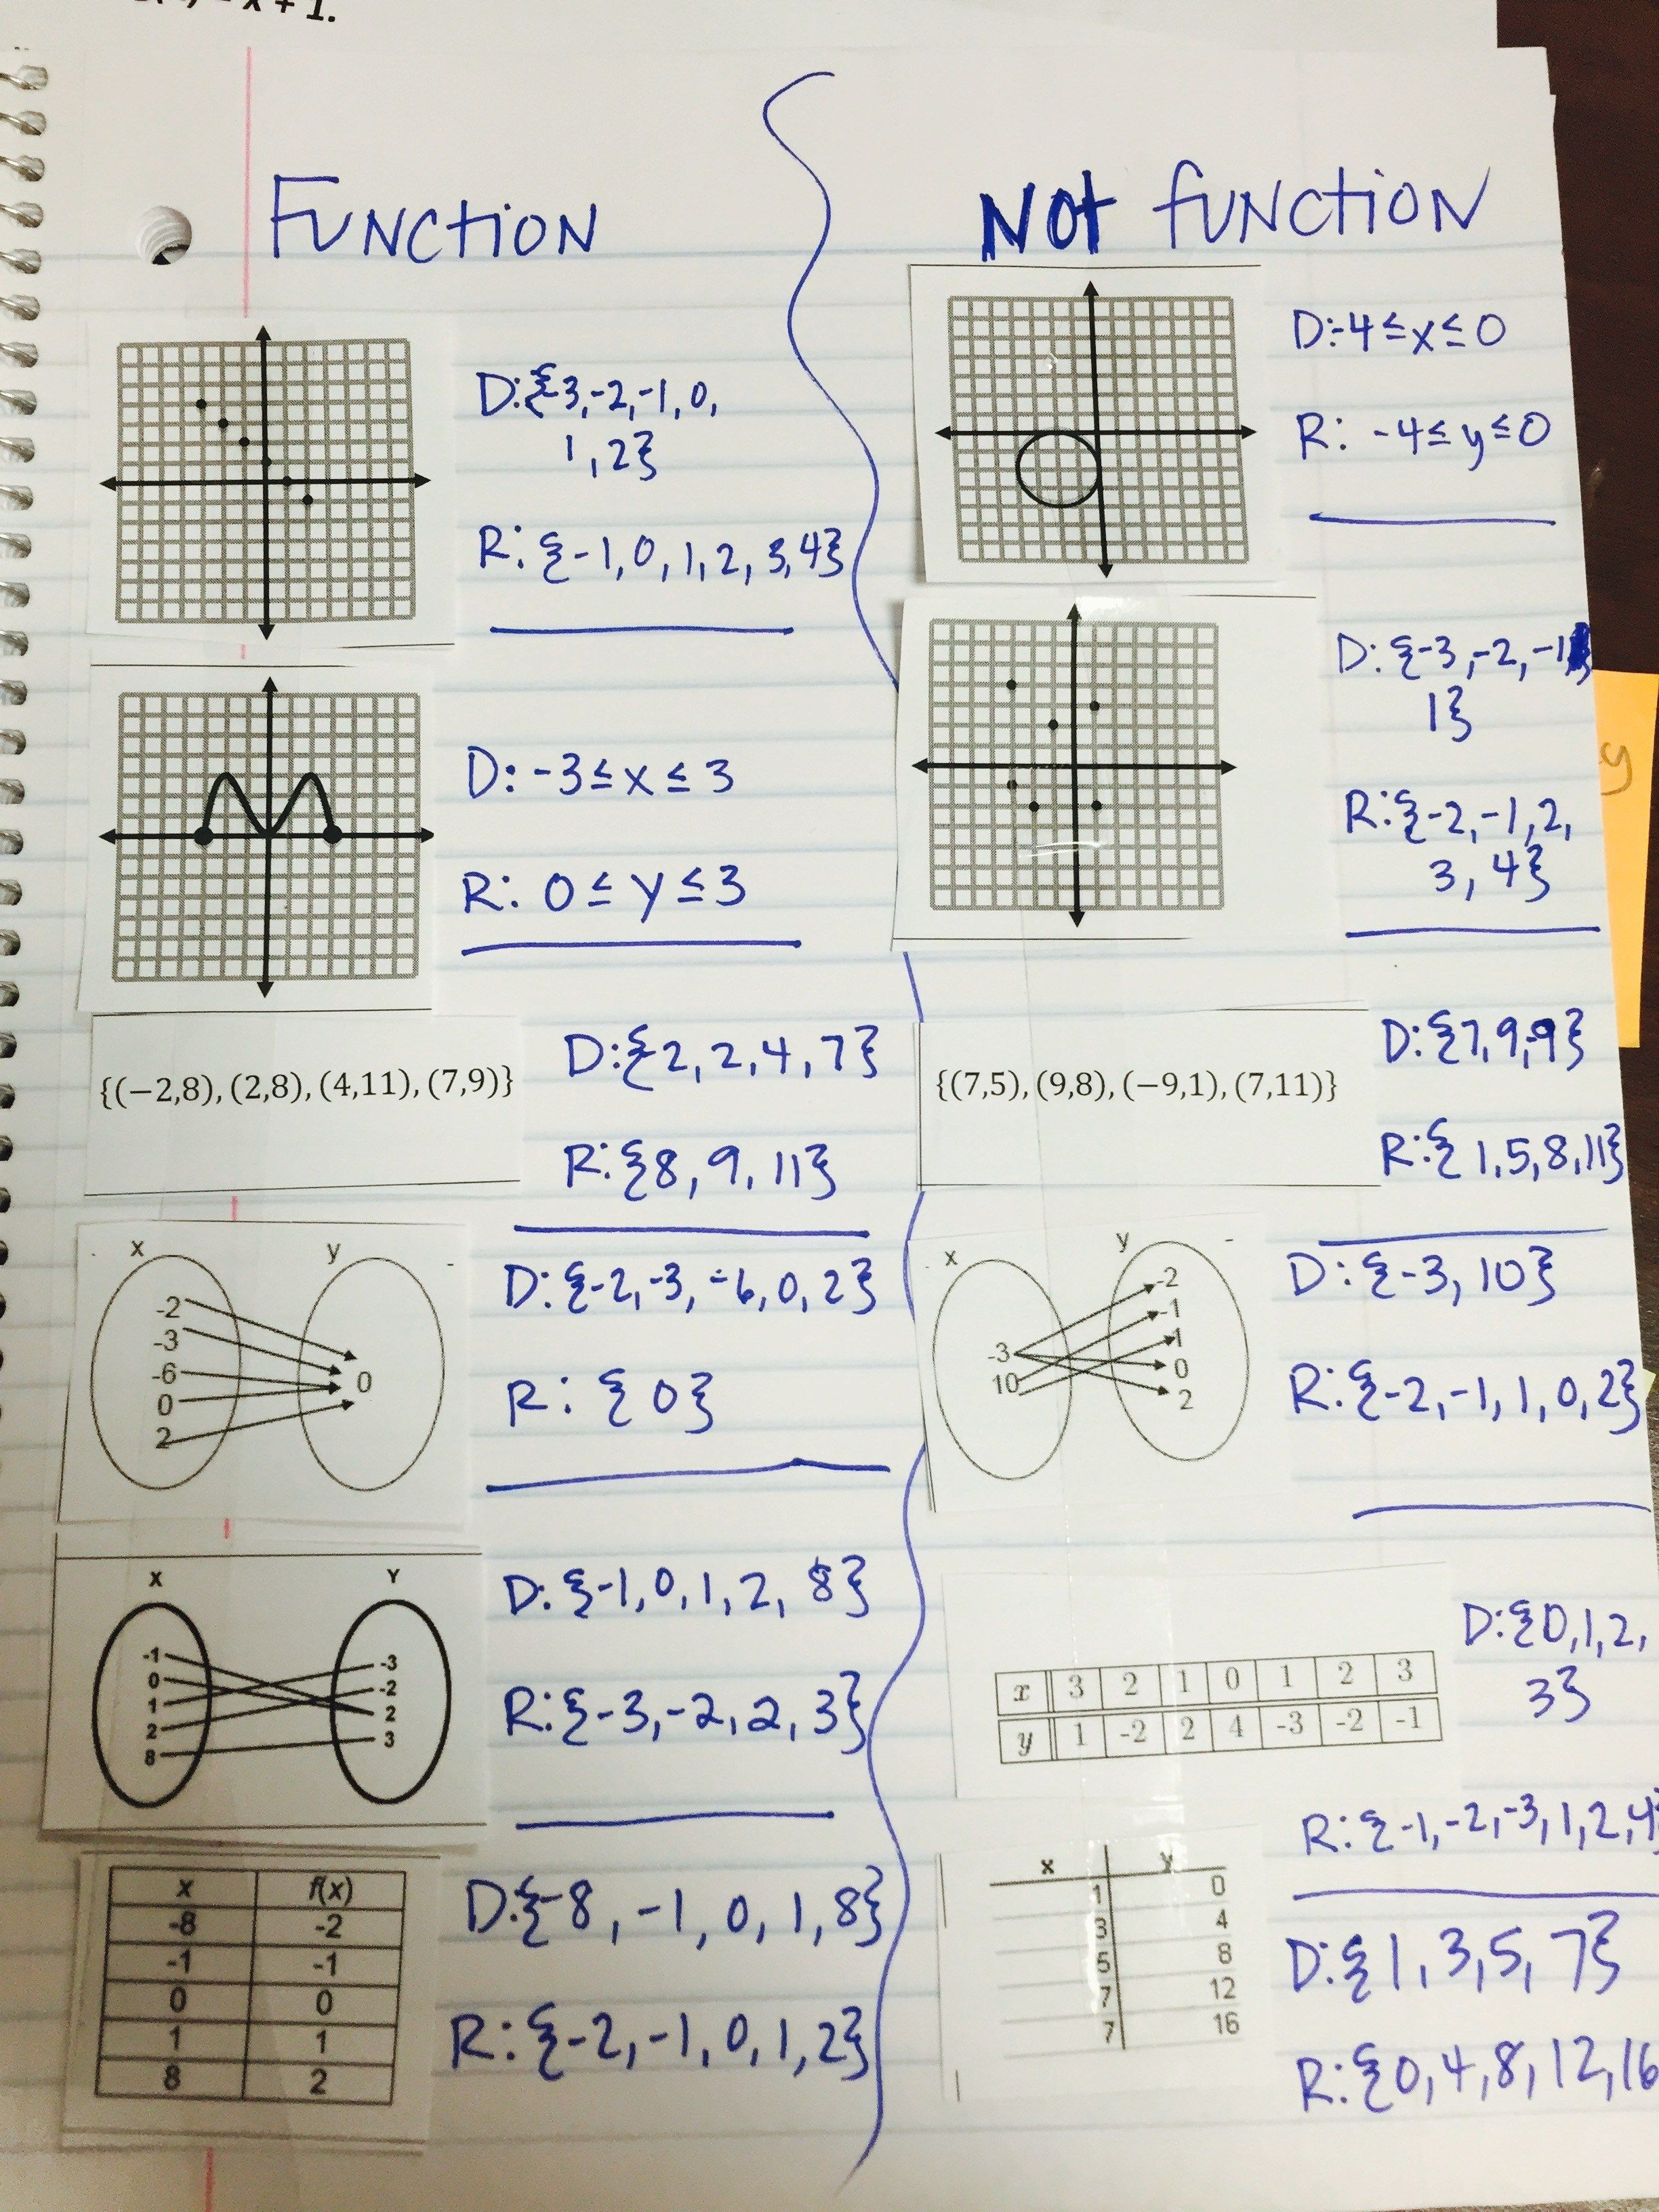 x + 1.
FUNCTION
NOt fUNCTION
D:{-3,-2,-1,0,
1,2}
R: {-1,0,1,2,3,4}
D:-4≤x≤0
R: -4≤y≤0
D: -3≤x≤3
R: 0≤y≤3
D: {-3,-2,-1,
1}
R:{-2,-1,2,
3,4}
y
{(−2,8),(2,8),(4,11),(7,9)}
D:{-2,2,4,7}
R:{8,9,11}
{(7,5),(9,8),(−9,1),(7,11)}
D:{7,9,-9}
R:{1,5,8,11}
x y
-2
-3
-6
0
2
0
D:{-2,-3,-6,0,2}
R: {0}
x y
-3
10
-2
-1
1
0
2
D:{-3,10}
R:{-2,-1,1,0,2}
X Y
-1
0
1
2
8
-3
-2
2
3
D: {-1,0,1,2,8}
R:{-3,-2,2,3}
x 3 2 1 0 1 2 3
y 1 -2 2 4 -3 -2 -1
D:{0,1,2,
3}
R:{-1,-2,-3,1,2,4}
x f(x)
-8 -2
-1 -1
0 0
1 1
8 2
D:{-8,-1,0,1,8}
R:{-2,-1,0,1,2}
x y
1 0
3 4
5 8
7 12
7 16
D:{1,3,5,7}
R:{0,4,8,12,16